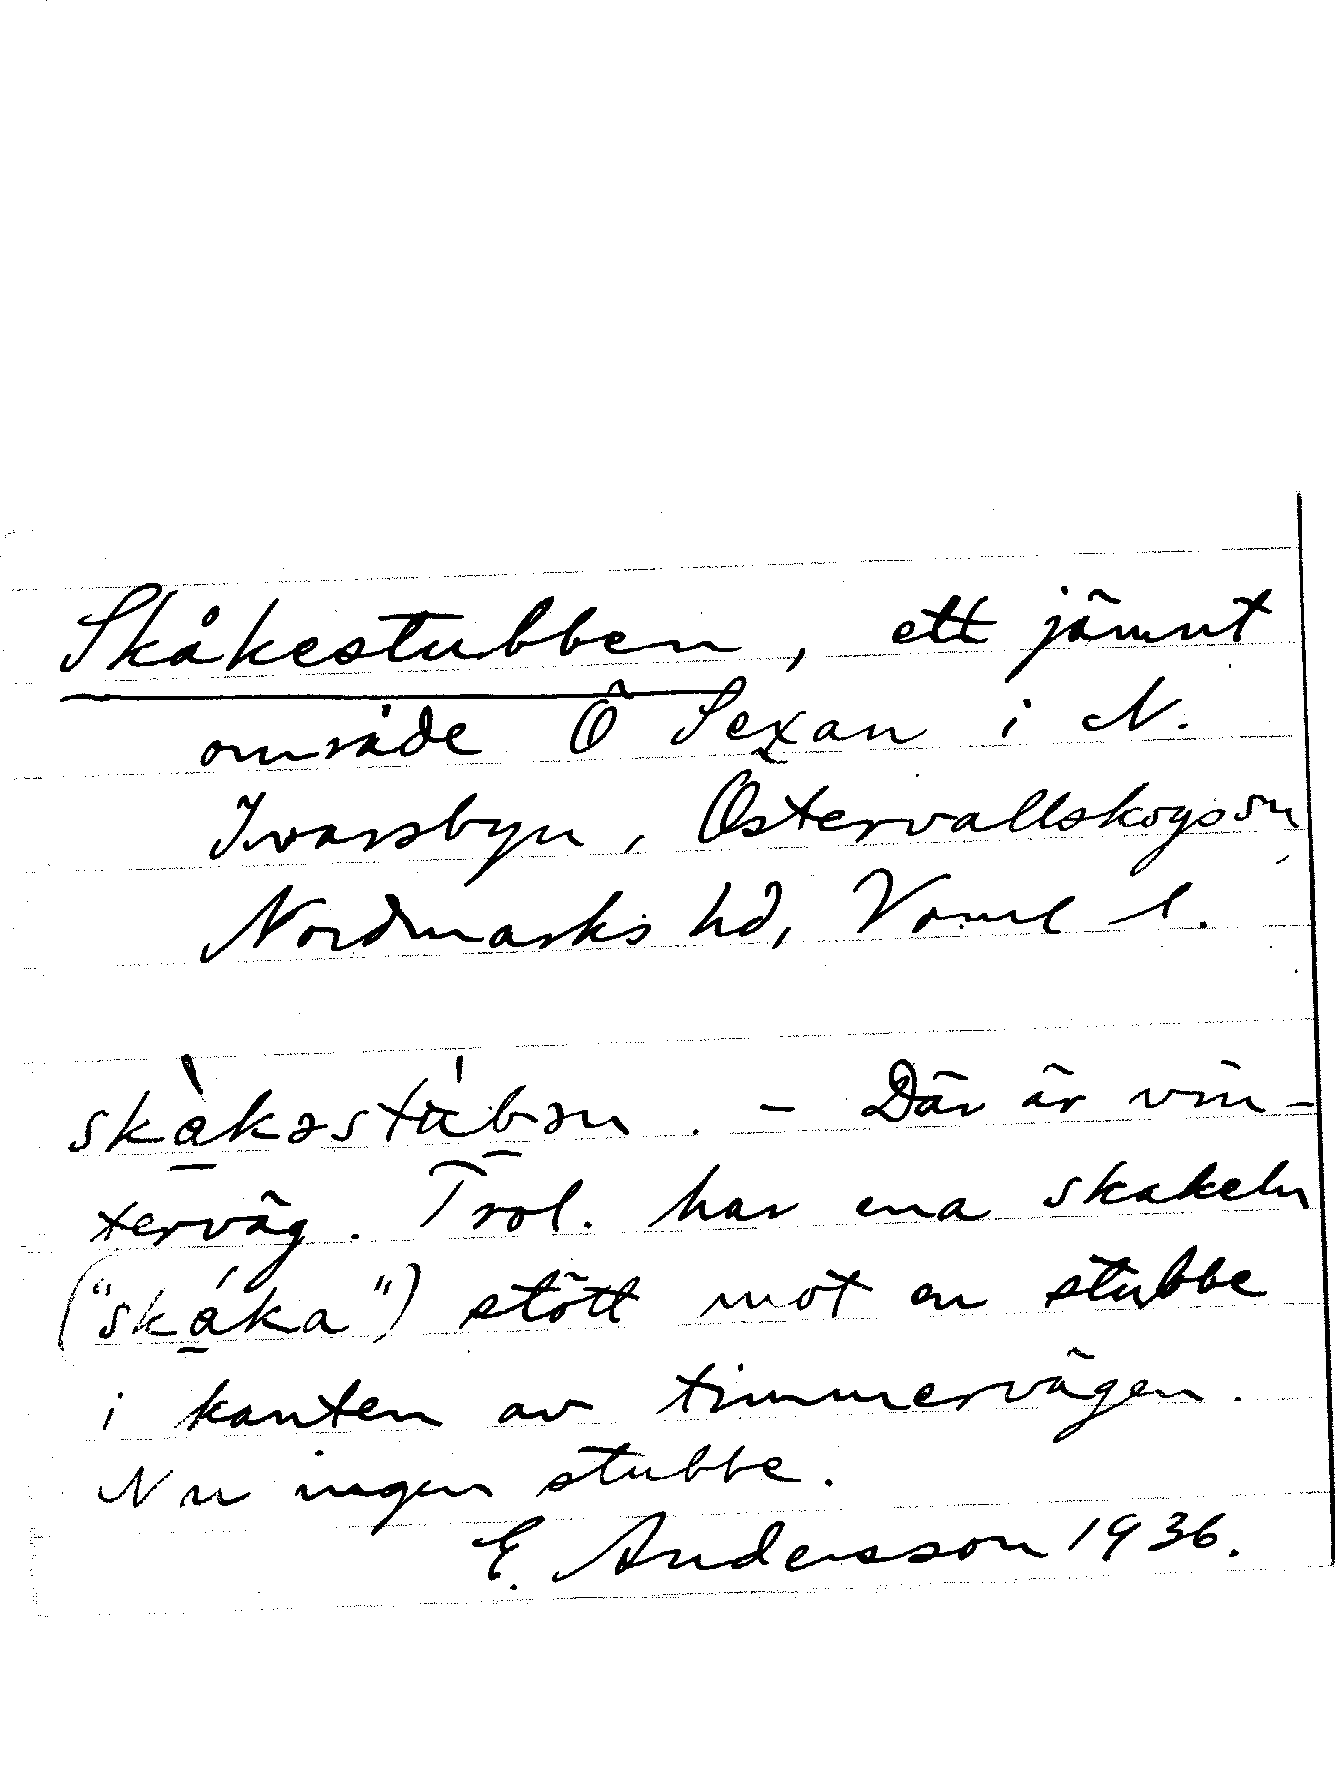 Skåkestubben, ett jämnt
område Ö Sexan i N.
Ivarsbyn, Östervallskogs sn,
Nordmarks hd, Värml l.
skàkəstúbən. – Där är vin-
terväg. Trol. har ena skakeln
("skáka") stött mot en stubbe
i kanten av timmervägen.
Nu ingen stubbe.
E. Andersson 1936.